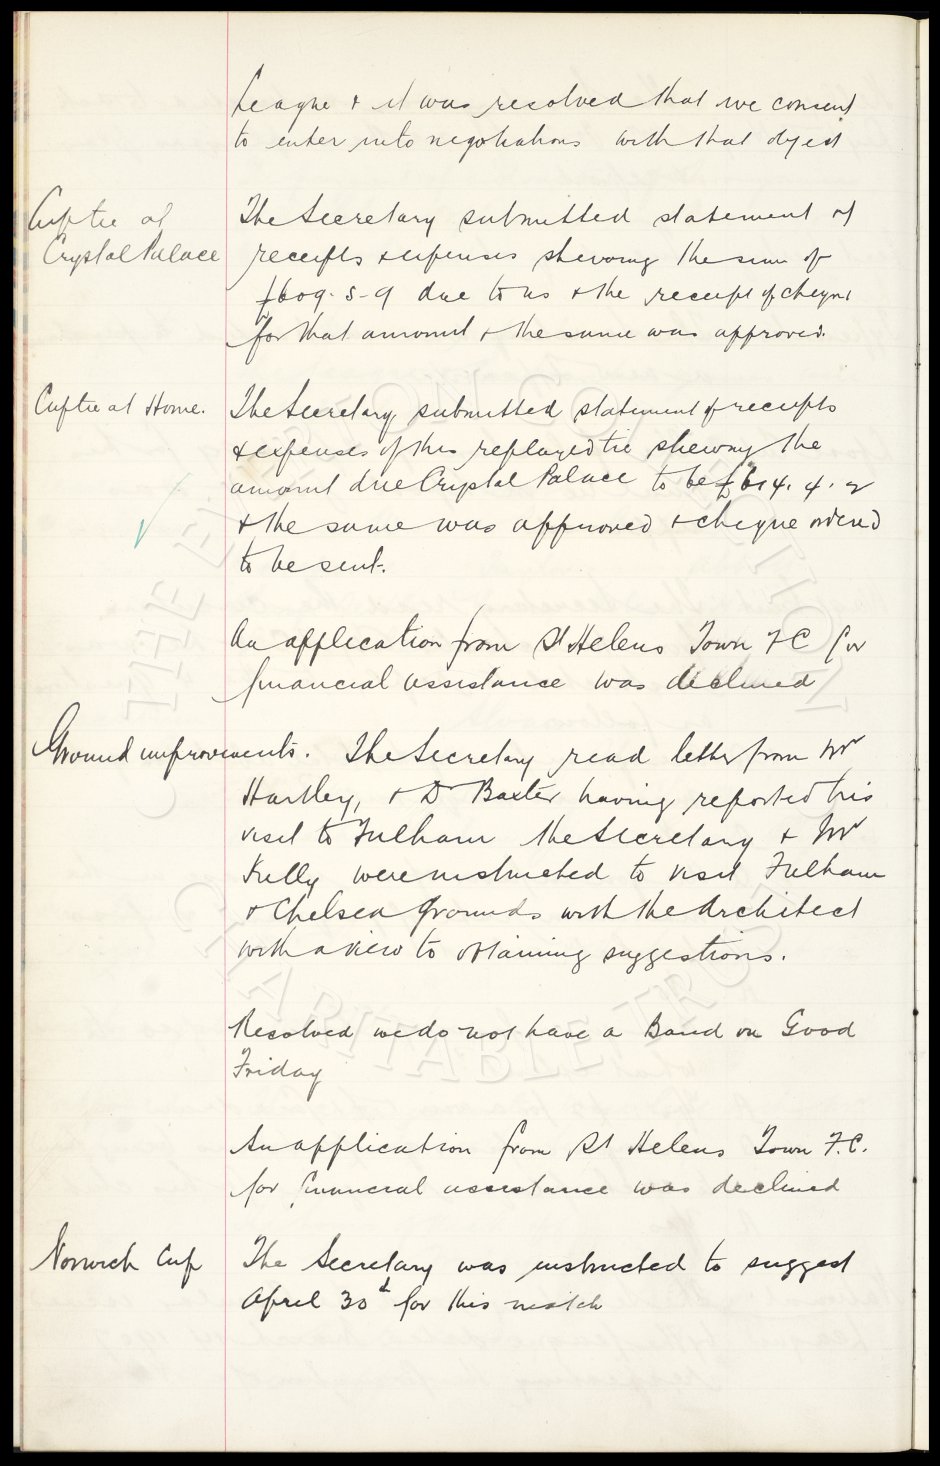 League & it was resolved that we consent
to enter into negotiations with that object
Cup tie at
Crystal Palace
The Secretary submitted statement of
receipts & expenses shewing the sum of
£609-5-9 due to us & the receipt of cheque
for that amount & the same was approved.
Cup tie at Home.
The Secretary submitted statement of receipts
& expenses of this replayed tie shewing the
amount due Crystal Palace to be £614. 4. 2
& the same was approved & cheque ordered
to be sent.
An application from St Helens Town F C for
financial assistance was declined
Ground improvements. The Secretary read letter from Mr
Hartley, & Dr Baxter having reported his
visit to Fulham the Secretary & Mr
Kelly were instructed to visit Fulham
& Chelsea grounds with the Architect
with a view to obtaining suggestions.
Resolved we do not have a Band on Good
Friday
An application from St Helens Town F.C.
for financial assistance was declined
Norwich Cup
The Secretary was instructed to suggest
April 30th for this match
THE EVERTON COLLECTION
CHARITABLE TRUST